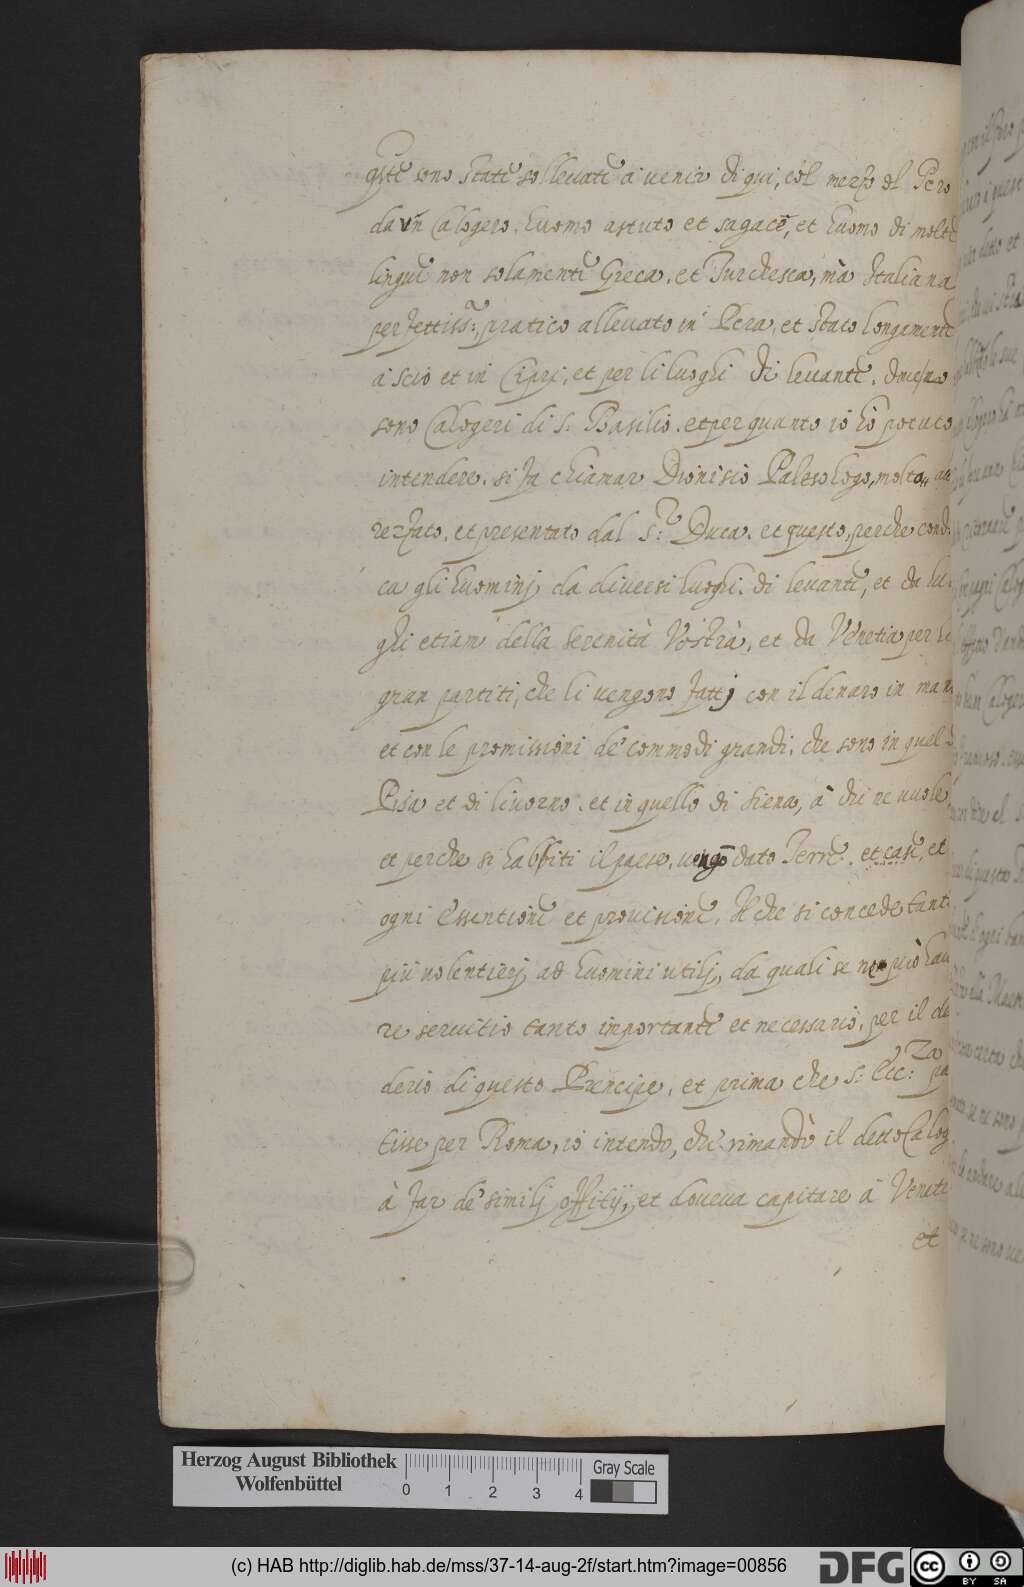 q̃ste sono state solleuate à uenir di qui, col mezo del Pero
da un Calogero. huomo astuto et sagace, et huomo di molte
lingue non solamente Greca, et Turchesca, mà Italiana
perfettiss.ª, pratico alleuato in Pera, et stato longamente
à Scio et in Cipri, et per li luoghi di leuante.
sono Calogeri di S. Basilio. et per quanto io hò potuto
intendere. si fa chiamar Dionisio Paleologo, molto
rezzato, et presentato dal S.r Duca. et questo, perche cond.
ca gli huominj da diuersi luoghi. di leuante, et da luo
ghi etiam della Serenità Vostrà, et da Venetia per li
gran partiti, che li uengono fattj con il denaro in man
et con le promissioni de' commodi grandi, che sono in quel d
Pisa et di liuorno. et in quello di Siena, à chi ne uuole,
et perche si habbiti il paese, uengõ dato Terre. et case, et
ogni essentione et prouisione. Il che si concede tant
più uolentierj ad huomini utilj, da quali se ne può hau
re seruitio tanto importante et necessario, per il de
derio di questo Prencipe, et prima che S. Ecc.za pa
tisse per Roma, io intendo, che rimandò il detto Calog
à far de' similj offitij, et doueua capitare à Veneti
et
Herzog August Bibliothek
Wolfenbüttel
0 1 2 3 4
Gray Scale
(c) HAB http://diglib.hab.de/mss/37-14-aug-2f/start.htm?image=00856
DFG
cc BY SA